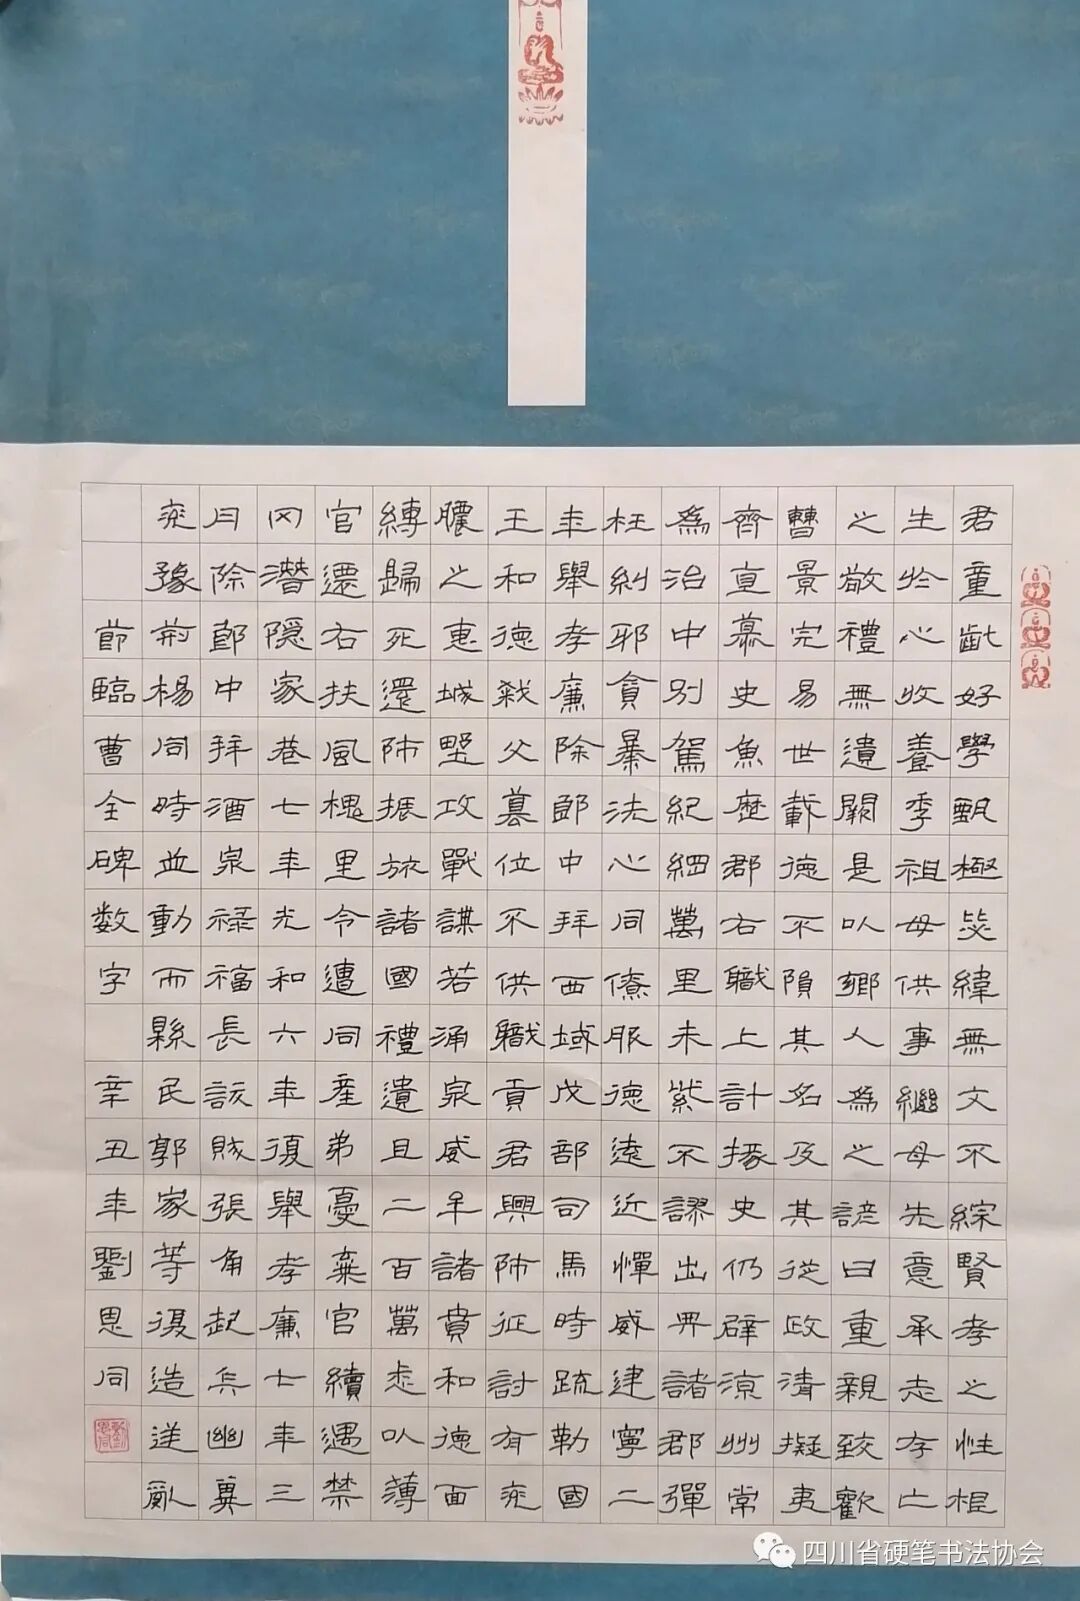 君童齔好學甄極毖緯無文不綜賢孝之性根
生於心收養季祖母供事繼母先意承志存亡
之敬禮無遺闕是以鄉人為之諺曰重親致歡
曹景完易世載德不隕其名及其從政清擬夷
齊直慕史魚歷郡右職上計掾史仍辟涼州常
為治中別駕紀綱萬里朱紫不謬出典諸郡彈
枉糾邪貪暴洗心同僚服德遠近憚威建寧二
年舉孝廉除郎中拜西域戊部司馬時疏勒國
王和德弒父篡位不供職貢君興師征討有兗
膿之惠城野攻戰謀若涌泉威牟諸賁和德面
縛歸死還師振旅諸國禮遺且二百萬悉以薄
官遷右扶風槐里令遭同產弟憂棄官續遇禁
网潛隱家巷七年光和六年復舉孝廉七年三
月除郎中拜酒泉祿福長訞賊張角起兵幽冀
兗豫荊楊同時並動而縣民郭家等復造逆亂
節臨曹全碑数字 辛丑年劉恩同
四川省硬笔书法协会